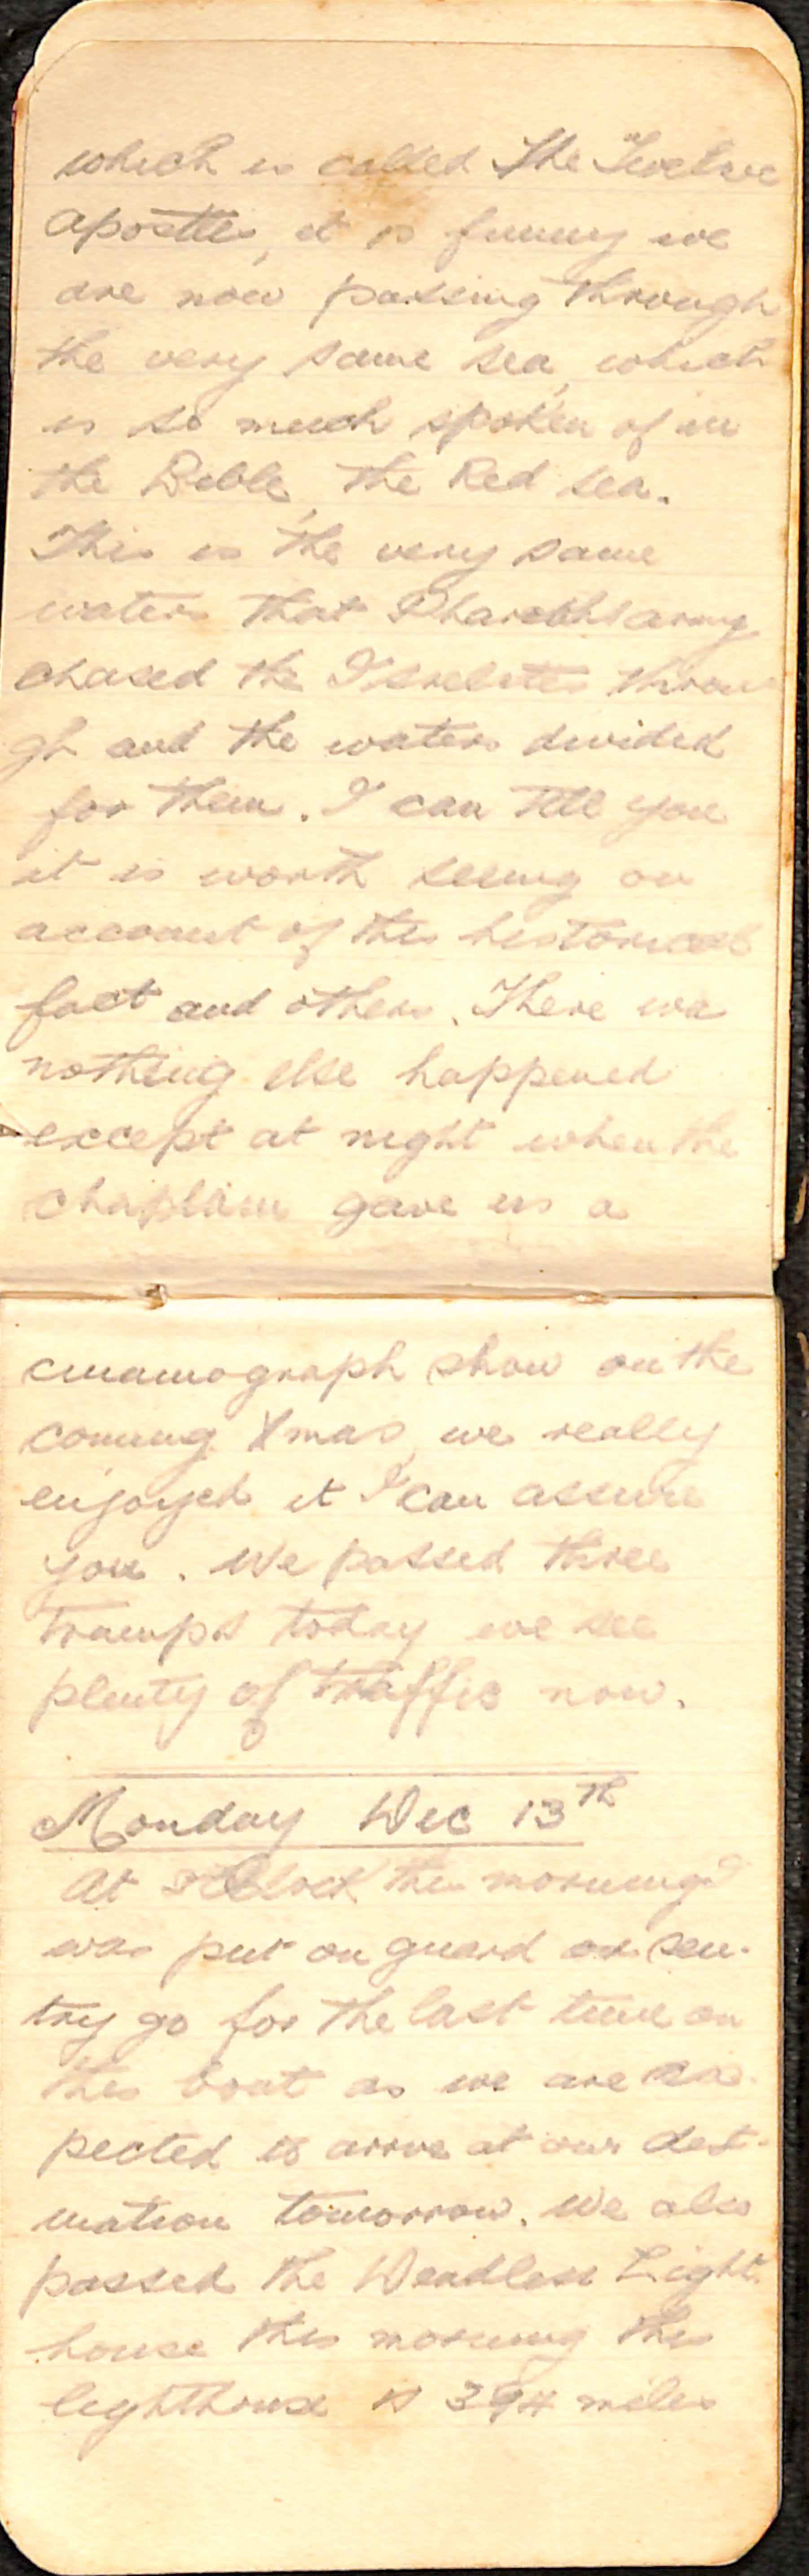 which is called The Twelve
apostles, it is funny we
are now passing through
the very same sea, which
is so much spoken of in
the Bible, the Red sea.
This is the very same
waters that Pharoahs army
chased the Isrelites throu
gh and the waters divided
for them. I can tell you
it is worth seeing on
account of this historical
fact and others. There wa
nothing else happened
except at night when the
chaplain gave us a
cinamograph show on the
coming Xmas, we really
enjoyed it I can assure
you. We passed three
tramps today we see
plenty of traffic now.
Monday Dec 13th
At oClock this morning I
was put on guard on sen-
try go for the last time on
this boat as we are ex-
pected to arrive at our dest-
ination tomorrow. We also
passed the Deadless Light
house this morning this
lighthouse is 394 miles